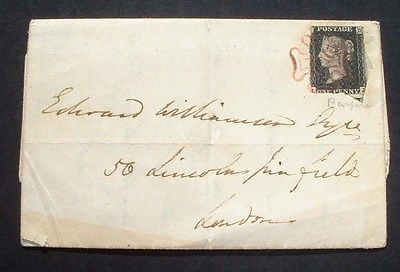 POSTAGE
ONE PENNY
Edward Williamson Esqre
56 Lincolns Inn Field
London